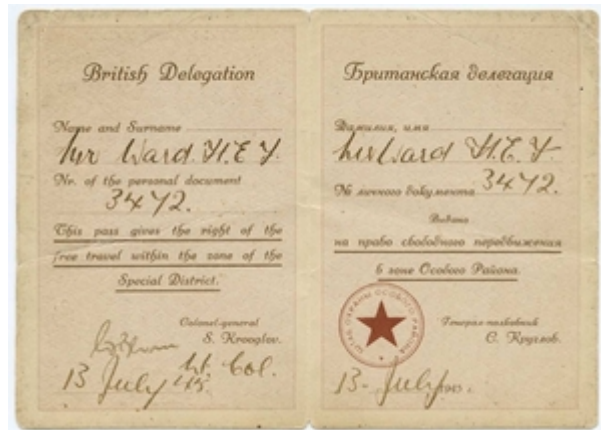 British Delegation
Name and Surname
Ward. H. E. Y.
Nr. of the personal document
3472.
This pass gives the right of the
free travel within the zone of the
Special District.
Colonel-general
S. Krooglov.
Lt. Col.
13 July 45.
Британская делегация
Фамилия, имя
Ward H. E. Y.
№ личного документа 3472.
Выдано
на право свободного передвижения
в зоне Особого Района.
ШТАБ ОХРАНЫ ОСОБОГО РАЙОНА
Генерал-полковник
С. Круглов.
13- July 1945 г.